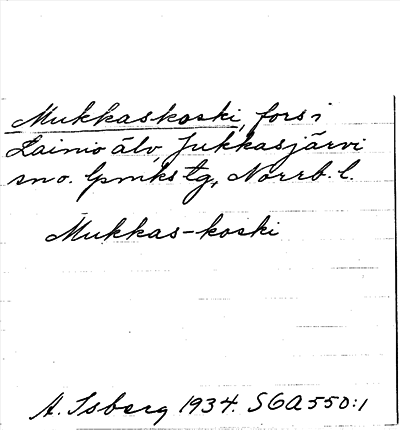 Mukkaskoski, fors i
Lainio älv, Jukkasjärvi
sno. lpmkstg, Norrb. l.
Mukkas-koski
A. Isberg 1934. SGA 550:1